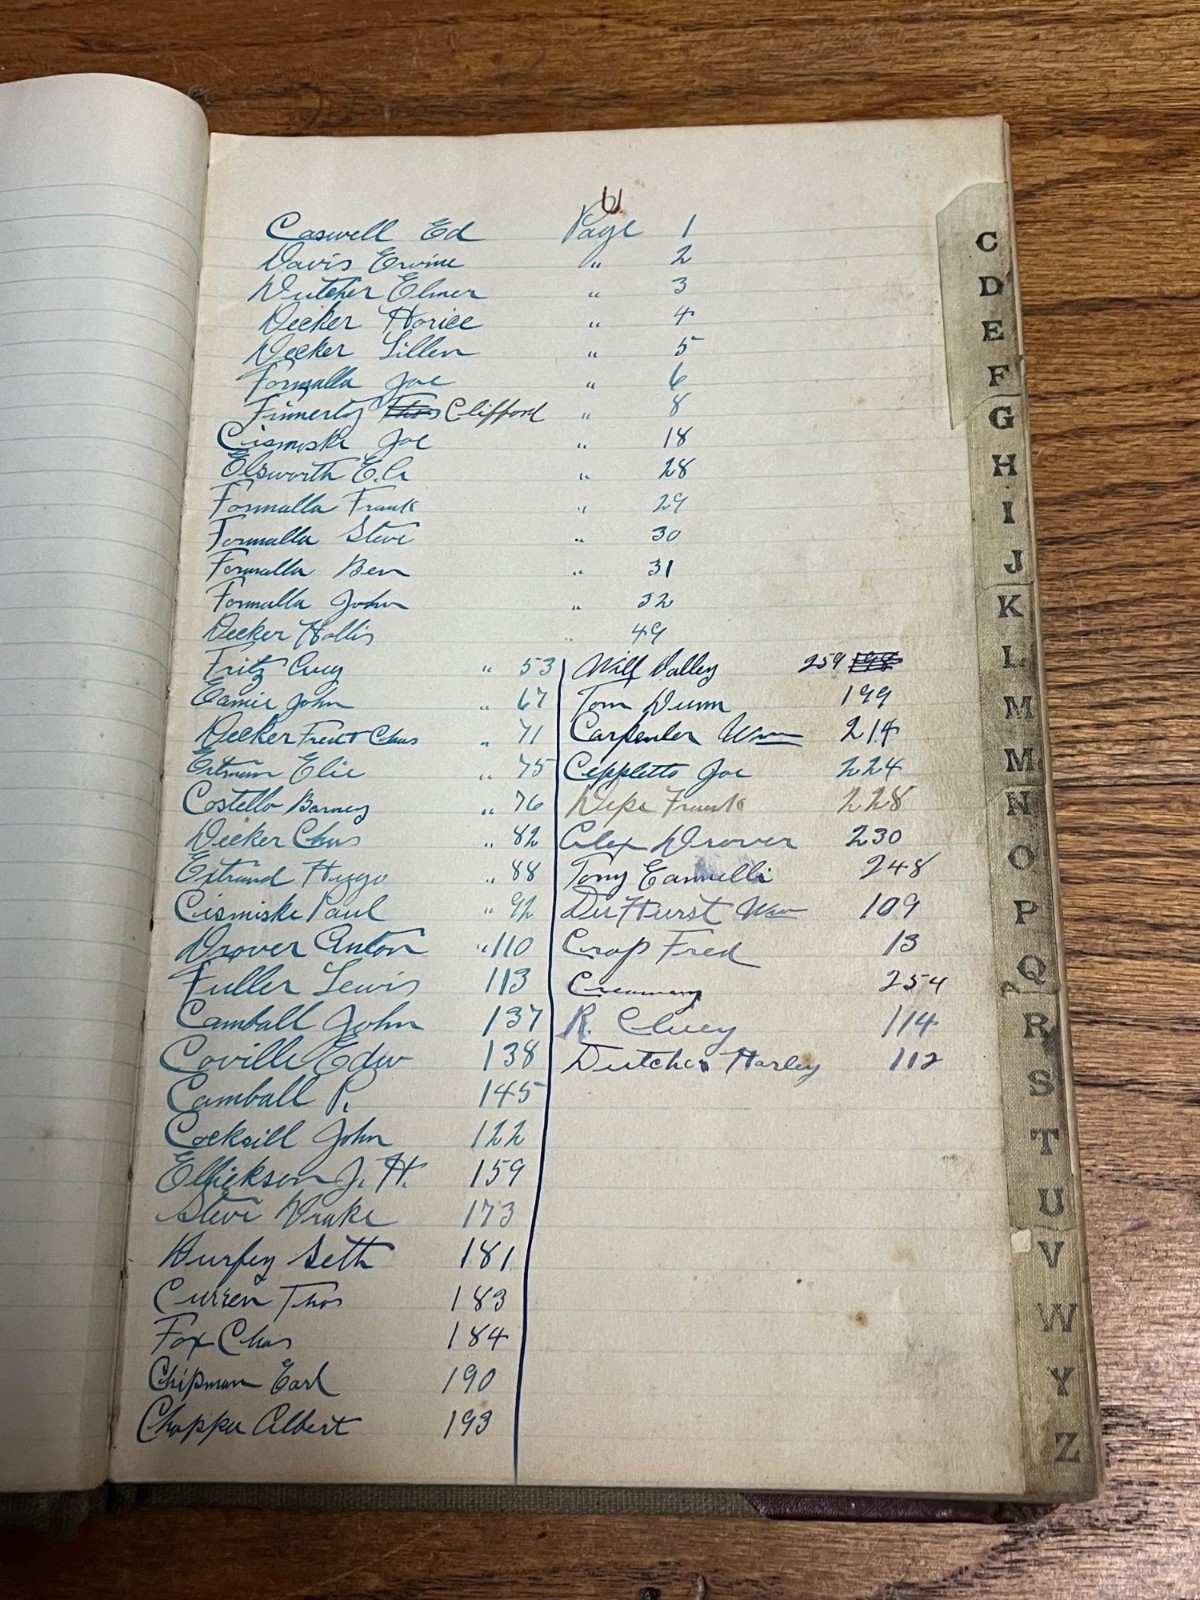 Caswell Ed Page 1
Davis Ervine " 2
Dutcher Elmer " 3
Decker Horice " 4
Decker Lillen " 5
Formalla Joe " 6
Finnerty Thos Clifford " 8
Cismiske Joe " 18
Elsworth E.G " 28
Formalla Frank " 29
Formalla Steve " 30
Formalla Ben " 31
Formalla John " 32
Decker Hollis " 49
Fritz " 53
Eamie John " 67
Decker Chas " 71
Elie " 75
Costello Barney " 76
Decker Chas " 82
Hugo " 88
Cismiske Paul " 92
Drover Anton " 110
Fuller Lewis 113
Camball John 137
Coville Edw 138
Camball P. 145
Cocksill John 122
Ellickson J. H. 159
Steve Drake 173
Durfey Seth 181
Curren Thos 183
Fox Chas 184
Chipman Earl 190
Chappa Albert 193
Will Dalley 259
Tom Dunn 199
Carpenter Wm 214
Ceppletto Joe 224
Depe Frank 228
Alex Drover 230
Tony Eannelli 248
DeHurst Wm 109
Crop Fred 13
Creamery 254
R. Cluey 114
Dutcher Harley 112
C
D
E
F
G
H
I
J
K
L
M
M
N
O
P
Q
R
S
T
U
V
W
Y
Z